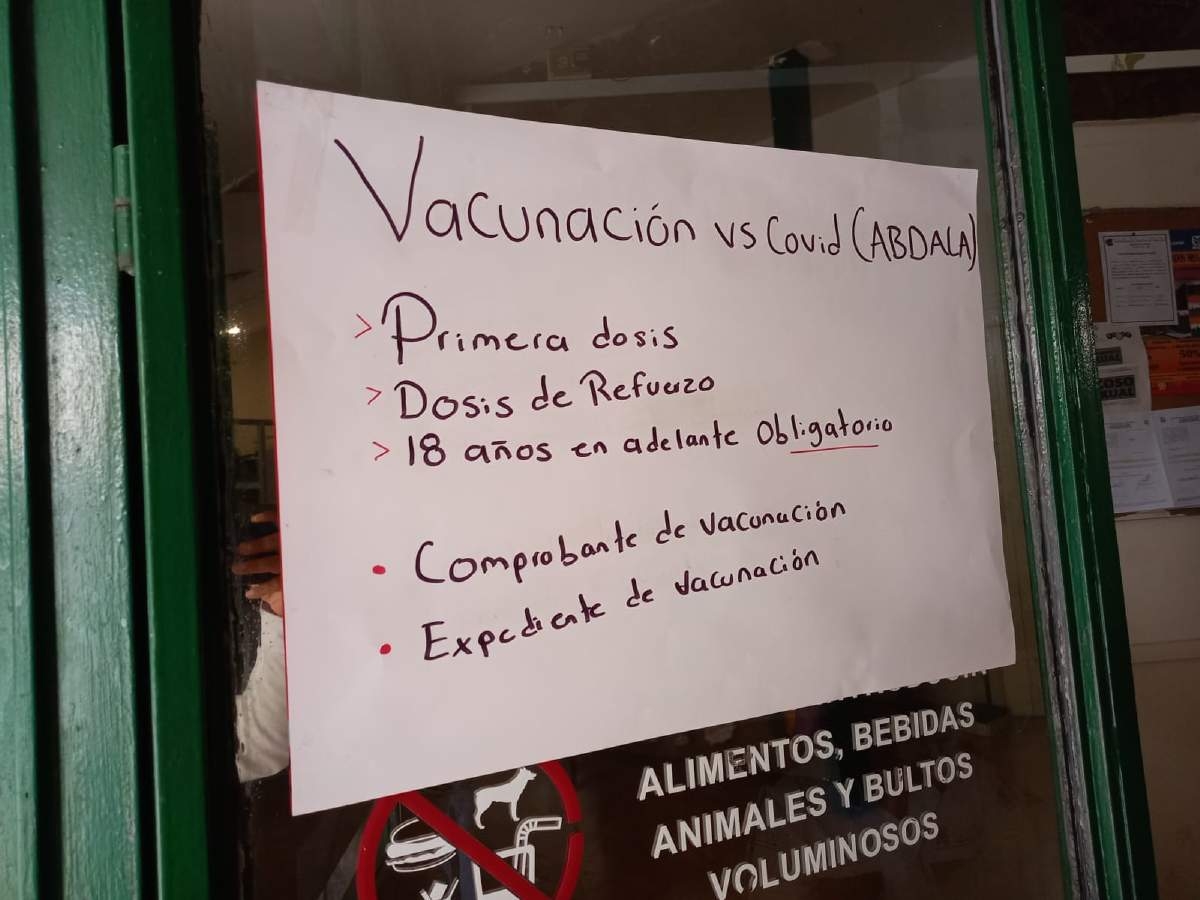 Vacunación vs Covid (ABDALA)
> Primera dosis
> Dosis de Refuerzo
> 18 años en adelante Obligatorio
• Comprobante de vacunación
• Expediente de vacunación
ALIMENTOS, BEBIDAS
ANIMALES Y BULTOS
VOLUMINOSOS